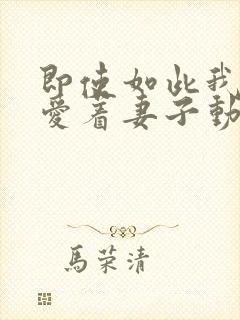 即使如此我
愛着妻子動
馬荣清